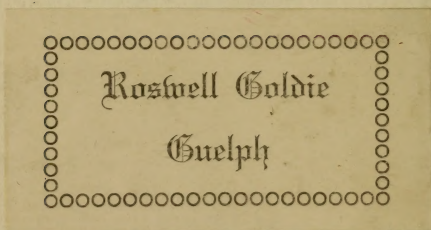 Roswell Goldie
Guelph